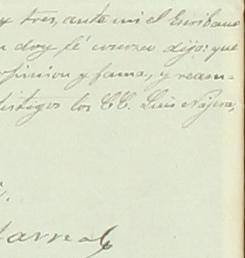 y tres, ante mi el Escribano
doy fé conozco dijo: que
opinion y fama, y
testigos los CC. Luis Nájera,